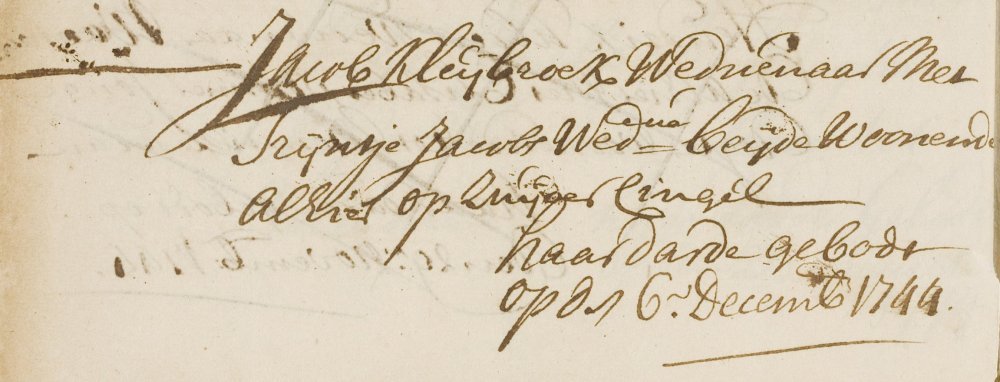 Jacob Kleijbroek Weduenaar Met
Trijntje Jacobs Wed=ue beijde Woonende
alhier op Cingel
haar darde gebodt
op ds 6r. Decemb 1744.